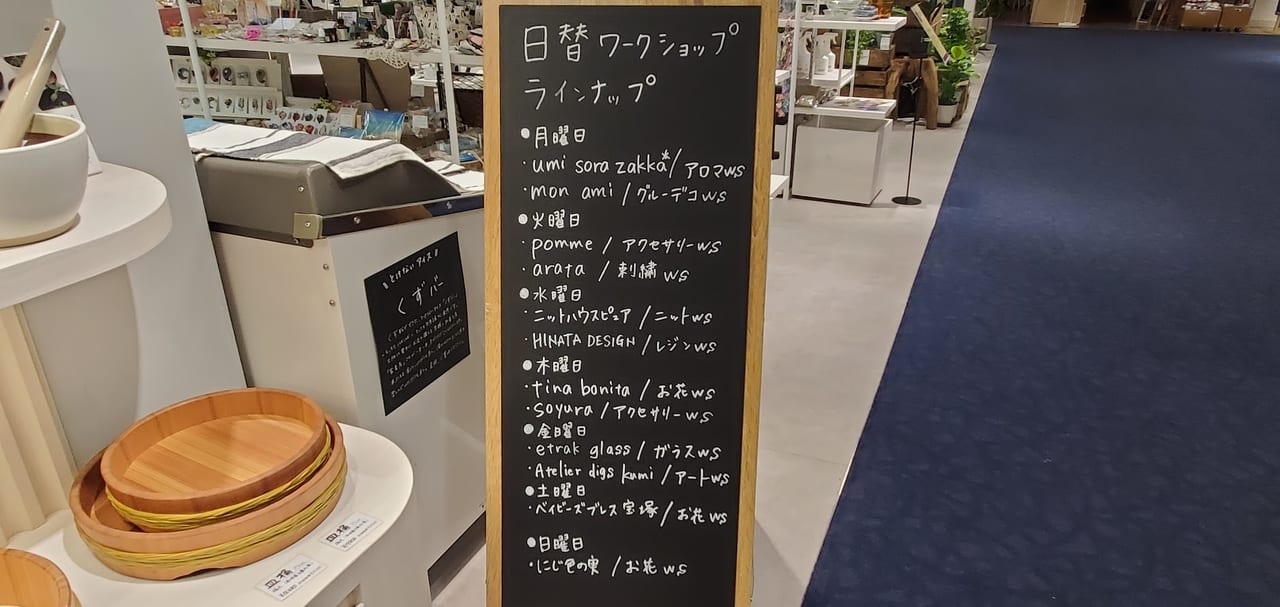 日替ワークショップ
ラインナップ
●月曜日
・umi sora zakka*/アロマws
・mon ami/グルーデコws
●火曜日
・pomme/アクセサリーws
・arata/刺繍ws
●水曜日
・ニットハウスピュア/ニットws
・HINATA DESIGN/レジンws
●木曜日
・tina bonita/お花ws
・soyura/アクセサリーws
●金曜日
・etrak glass/ガラスws
・Atelier digs kumi/アートws
●土曜日
・ベイビーズブレス宝塚/お花ws
●日曜日
・にじ色の実/お花ws
とけないアイス
くずバー
皿桶
皿桶